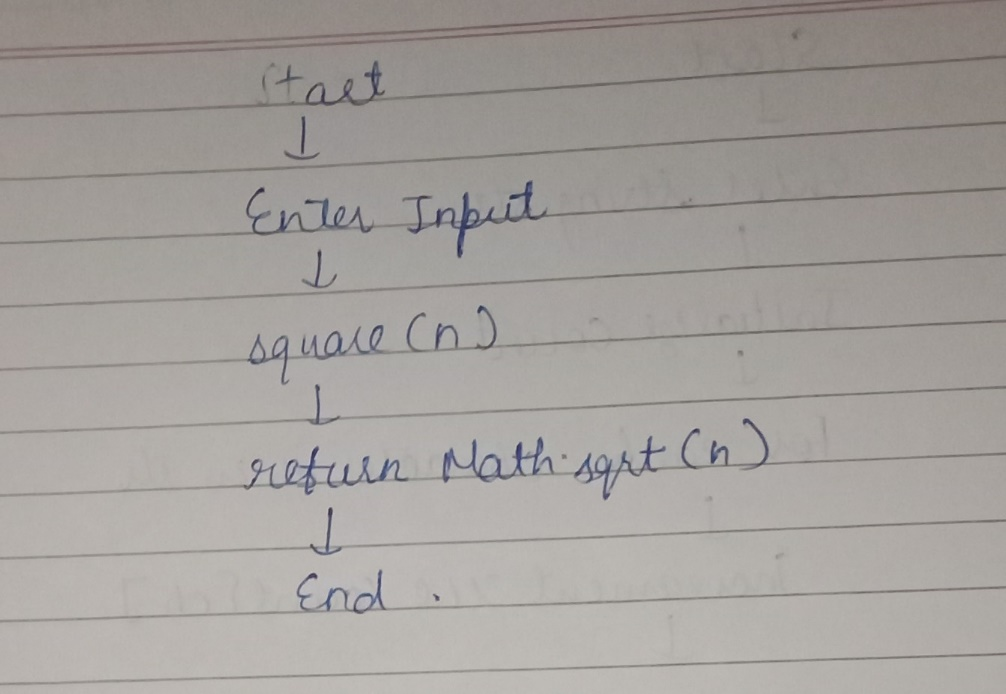 Start
↓
Enter Input
↓
square (n)
↓
return Math.sqrt (n)
↓
End .